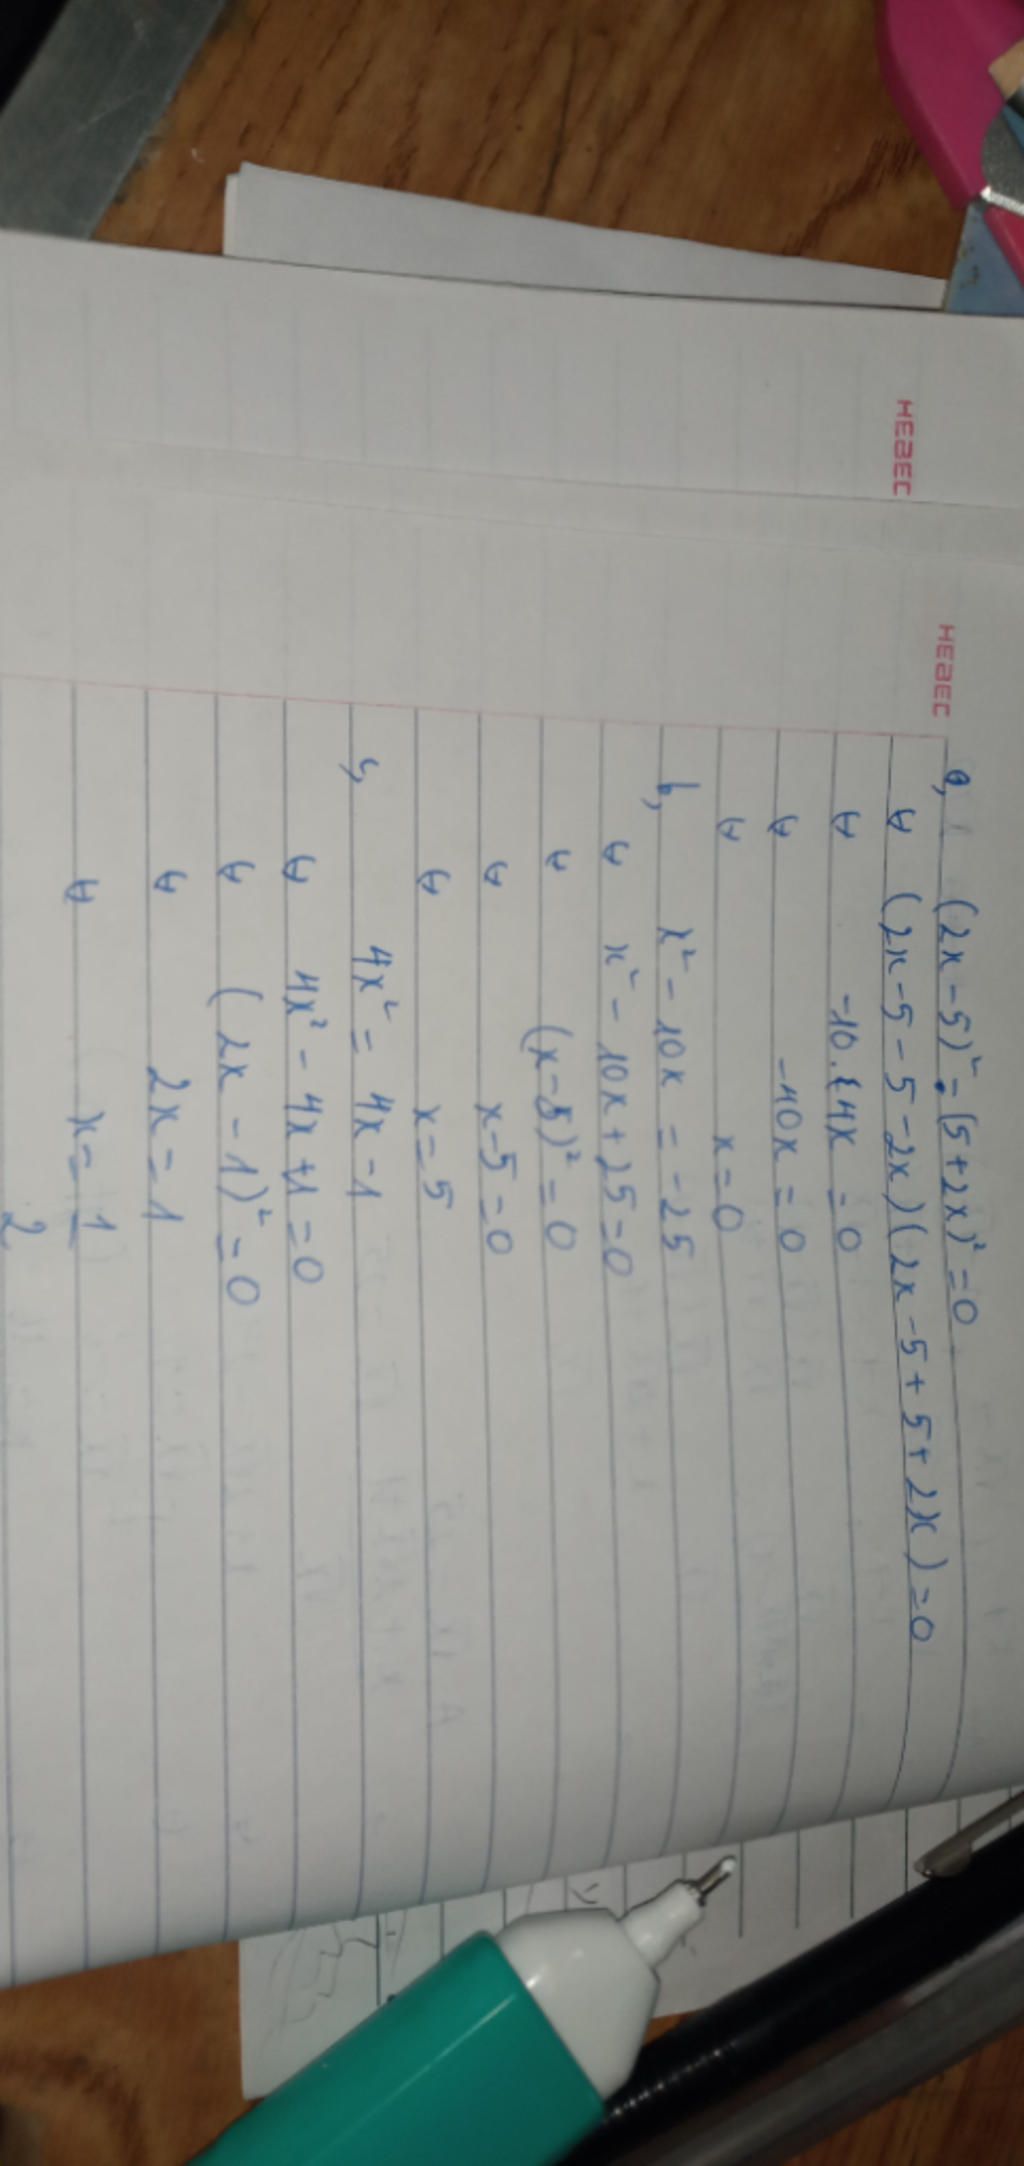 HEBEC
HEBEC
a, (2x - 5)² - (5 + 2x)² = 0
⇔ (2x - 5 - 5 - 2x)(2x - 5 + 5 + 2x) = 0
⇔ -10 . 4x = 0
⇔ -40x = 0
⇔ x = 0
b, x² - 10x = -25
⇔ x² - 10x + 25 = 0
⇔ (x - 5)² = 0
⇔ x - 5 = 0
⇔ x = 5
c, 4x² = 4x - 1
⇔ 4x² - 4x + 1 = 0
⇔ (2x - 1)² = 0
⇔ 2x = 1
⇔ x = 1
2